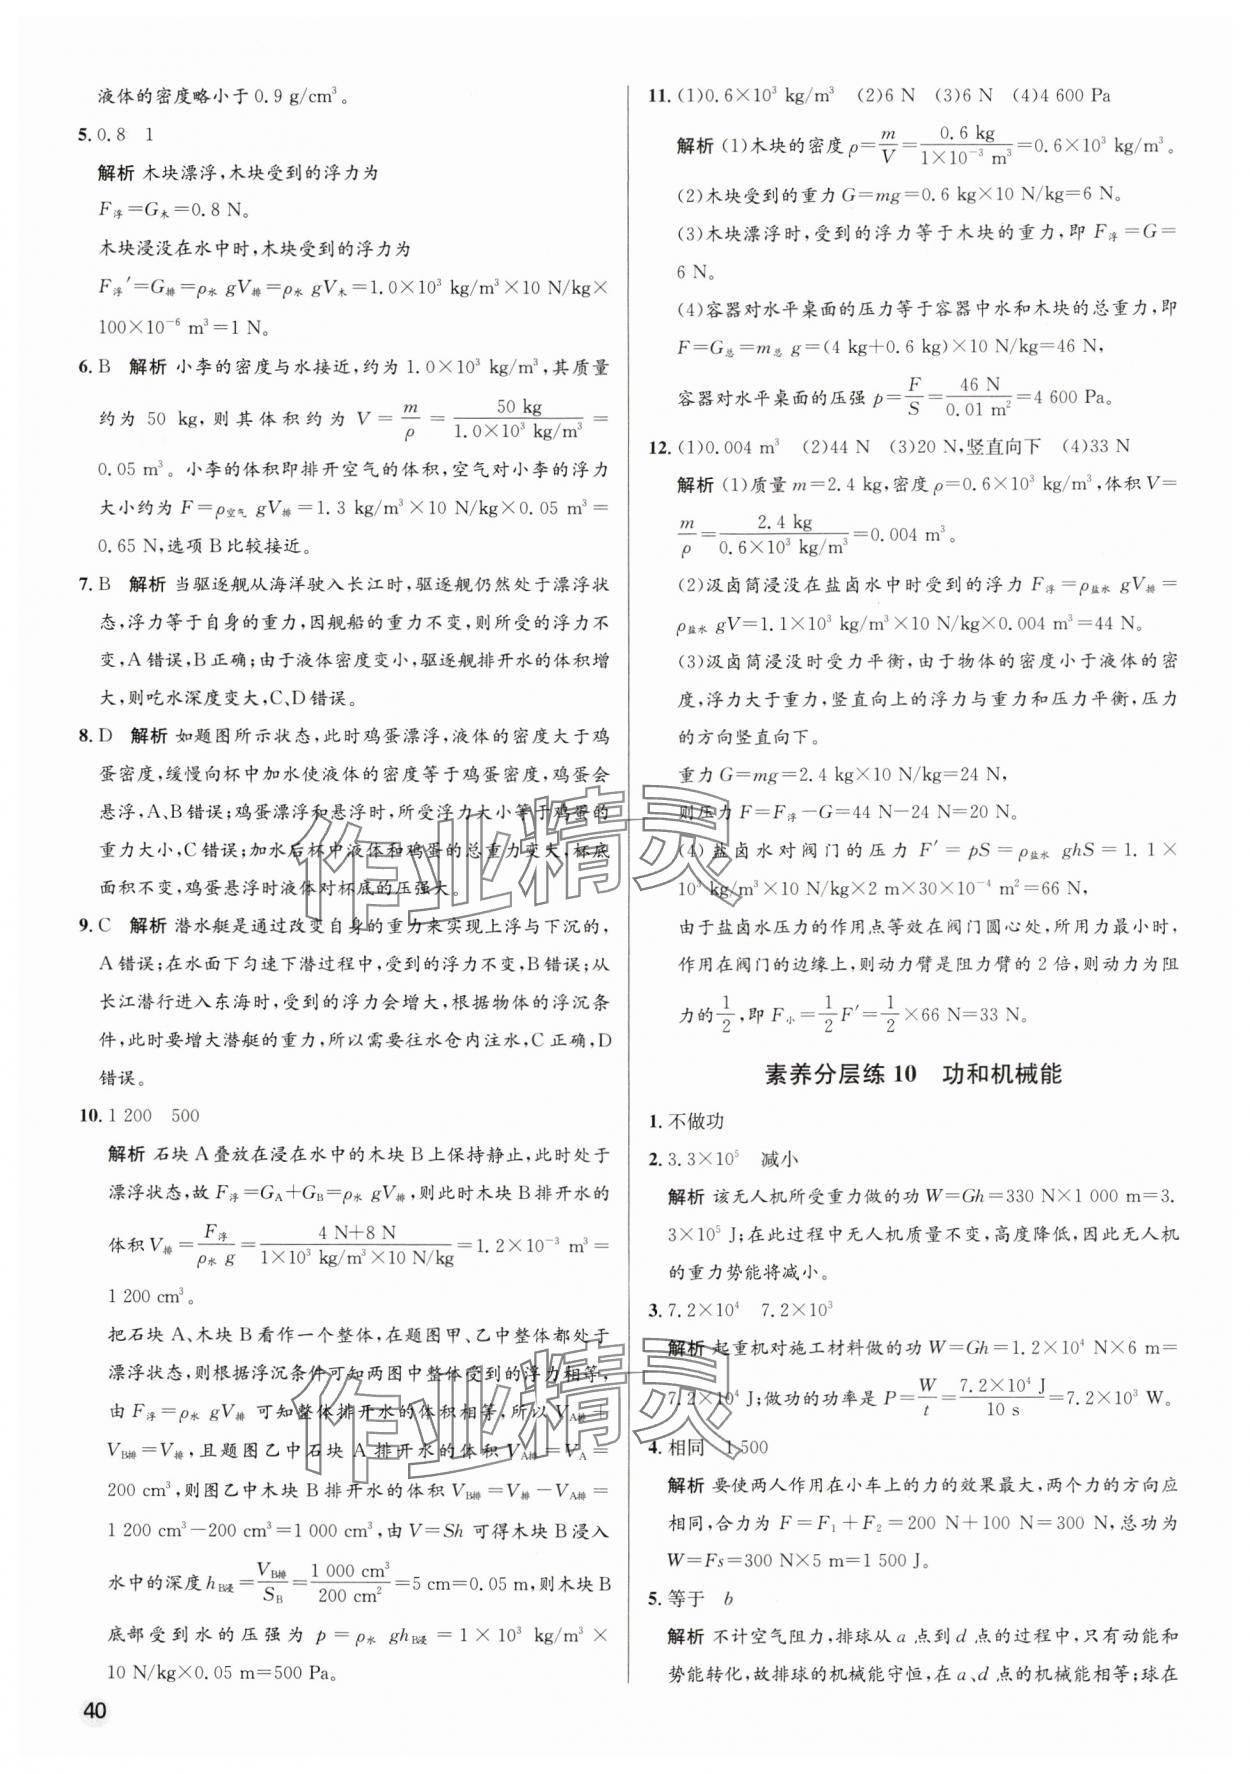 液体的密度略小于0.9 g/cm³。
5. 0.8　1
解析 木块漂浮,木块受到的浮力为
F浮=G木=0.8 N。
木块浸没在水中时,木块受到的浮力为
F浮′=G排=ρ水 gV排=ρ水 gV木=1.0×10³ kg/m³×10 N/kg×
100×10⁻⁶ m³=1 N。
6. B 解析 小李的密度与水接近,约为1.0×10³ kg/m³,其质量
约为 50 kg,则其体积约为 V=m/ρ=50 kg/1.0×10³ kg/m³=
0.05 m³。小李的体积即排开空气的体积,空气对小李的浮力
大小约为 F=ρ空气 gV排=1.3 kg/m³×10 N/kg×0.05 m³=
0.65 N,选项B比较接近。
7. B 解析 当驱逐舰从海洋驶入长江时,驱逐舰仍然处于漂浮状
态,浮力等于自身的重力,因舰船的重力不变,则所受的浮力不
变,A错误,B正确;由于液体密度变小,驱逐舰排开水的体积增
大,则吃水深度变大,C、D错误。
8. D 解析 如题图所示状态,此时鸡蛋漂浮,液体的密度大于鸡
蛋密度,缓慢向杯中加水使液体的密度等于鸡蛋密度,鸡蛋会
悬浮,A、B错误;鸡蛋漂浮和悬浮时,所受浮力大小等于鸡蛋的
重力大小,C错误;加水后杯中液体和鸡蛋的总重力变大,杯底
面积不变,鸡蛋悬浮时液体对杯底的压强大。
9. C 解析 潜水艇是通过改变自身的重力来实现上浮与下沉的,
A错误;在水面下匀速下潜过程中,受到的浮力不变,B错误;从
长江潜行进入东海时,受到的浮力会增大,根据物体的浮沉条
件,此时要增大潜艇的重力,所以需要往水仓内注水,C正确,D
错误。
10. 1 200　500
解析 石块A叠放在浸在水中的木块B上保持静止,此时处于
漂浮状态,故F浮=GA+GB=ρ水 gV排,则此时木块B排开水的
体积V排=F浮/ρ水 g=4 N+8 N/1×10³ kg/m³×10 N/kg=1.2×10⁻³ m³=
1 200 cm³。
把石块A、木块B看作一个整体,在题图甲、乙中整体都处于
漂浮状态,则根据浮沉条件可知两图中整体受到的浮力相等,
由F浮=ρ水 gV排 可知整体排开水的体积相等,所以VA排+
VB排=V排,且题图乙中石块A排开水的体积VA排=VA=
200 cm³,则图乙中木块B排开水的体积VB排=V排−VA排=
1 200 cm³−200 cm³=1 000 cm³,由V=Sh可得木块B浸入
水中的深度hB浸=VB排/SB=1 000 cm³/200 cm²=5 cm=0.05 m,则木块B
底部受到水的压强为 p=ρ水 ghB浸=1×10³ kg/m³×
10 N/kg×0.05 m=500 Pa。
40
11. (1)0.6×10³ kg/m³　(2)6 N　(3)6 N　(4)4 600 Pa
解析 (1)木块的密度ρ=m/V=0.6 kg/1×10⁻³ m³=0.6×10³ kg/m³。
(2)木块受到的重力G=mg=0.6 kg×10 N/kg=6 N。
(3)木块漂浮时,受到的浮力等于木块的重力,即F浮=G=
6 N。
(4)容器对水平桌面的压力等于容器中水和木块的总重力,即
F=G总=m总 g=(4 kg+0.6 kg)×10 N/kg=46 N,
容器对水平桌面的压强p=F/S=46 N/0.01 m²=4 600 Pa。
12. (1)0.004 m³　(2)44 N　(3)20 N,竖直向下　(4)33 N
解析 (1)质量m=2.4 kg,密度ρ=0.6×10³ kg/m³,体积V=
m/ρ=2.4 kg/0.6×10³ kg/m³=0.004 m³。
(2)汲卤筒浸没在盐卤水中时受到的浮力F浮=ρ盐水 gV排=
ρ盐水 gV=1.1×10³ kg/m³×10 N/kg×0.004 m³=44 N。
(3)汲卤筒浸没时受力平衡,由于物体的密度小于液体的密
度,浮力大于重力,竖直向上的浮力与重力和压力平衡,压力
的方向竖直向下。
重力G=mg=2.4 kg×10 N/kg=24 N,
则压力F=F浮−G=44 N−24 N=20 N。
(4)盐卤水对阀门的压力 F′=pS=ρ盐水 ghS=1.1×
10³ kg/m³×10 N/kg×2 m×30×10⁻⁴ m²=66 N,
由于盐卤水压力的作用点等效在阀门圆心处,所用力最小时,
作用在阀门的边缘上,则动力臂是阻力臂的2倍,则动力为阻
力的1/2,即F小=1/2F′=1/2×66 N=33 N。
素养分层练10　功和机械能
1. 不做功
2. 3.3×10⁵　减小
解析 该无人机所受重力做的功W=Gh=330 N×1 000 m=3.
3×10⁵ J;在此过程中无人机质量不变,高度降低,因此无人机
的重力势能将减小。
3. 7.2×10⁴　7.2×10³
解析 起重机对施工材料做的功W=Gh=1.2×10⁴ N×6 m=
7.2×10⁴ J;做功的功率是P=W/t=7.2×10⁴ J/10 s=7.2×10³ W。
4. 相同　1 500
解析 要使两人作用在小车上的力的效果最大,两个力的方向应
相同,合力为F=F₁+F₂=200 N+100 N=300 N,总功为
W=Fs=300 N×5 m=1 500 J。
5. 等于　b
解析 不计空气阻力,排球从a点到d点的过程中,只有动能和
势能转化,故排球的机械能守恒,在a、d点的机械能相等;球在
作业精灵
作业精灵